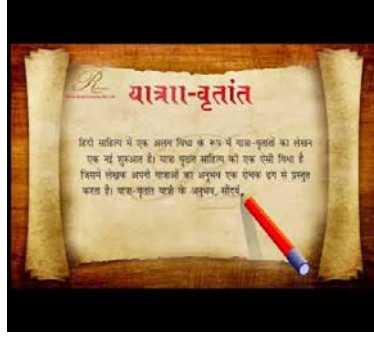 यात्रा-वृतांत
हिंदी साहित्य में एक अलग विधा के रूप में यात्रा-वृतातों का लेखन
एक नई शुरुआत है। यात्रा वृतांत साहित्य की एक ऐसी विधा है
जिसमें लेखक अपनी यात्राओं का अनुभव एक रोचक ढंग से प्रस्तुत
करता है। यात्रा-वृतांत यात्री के अनुभव, सौंदर्य,